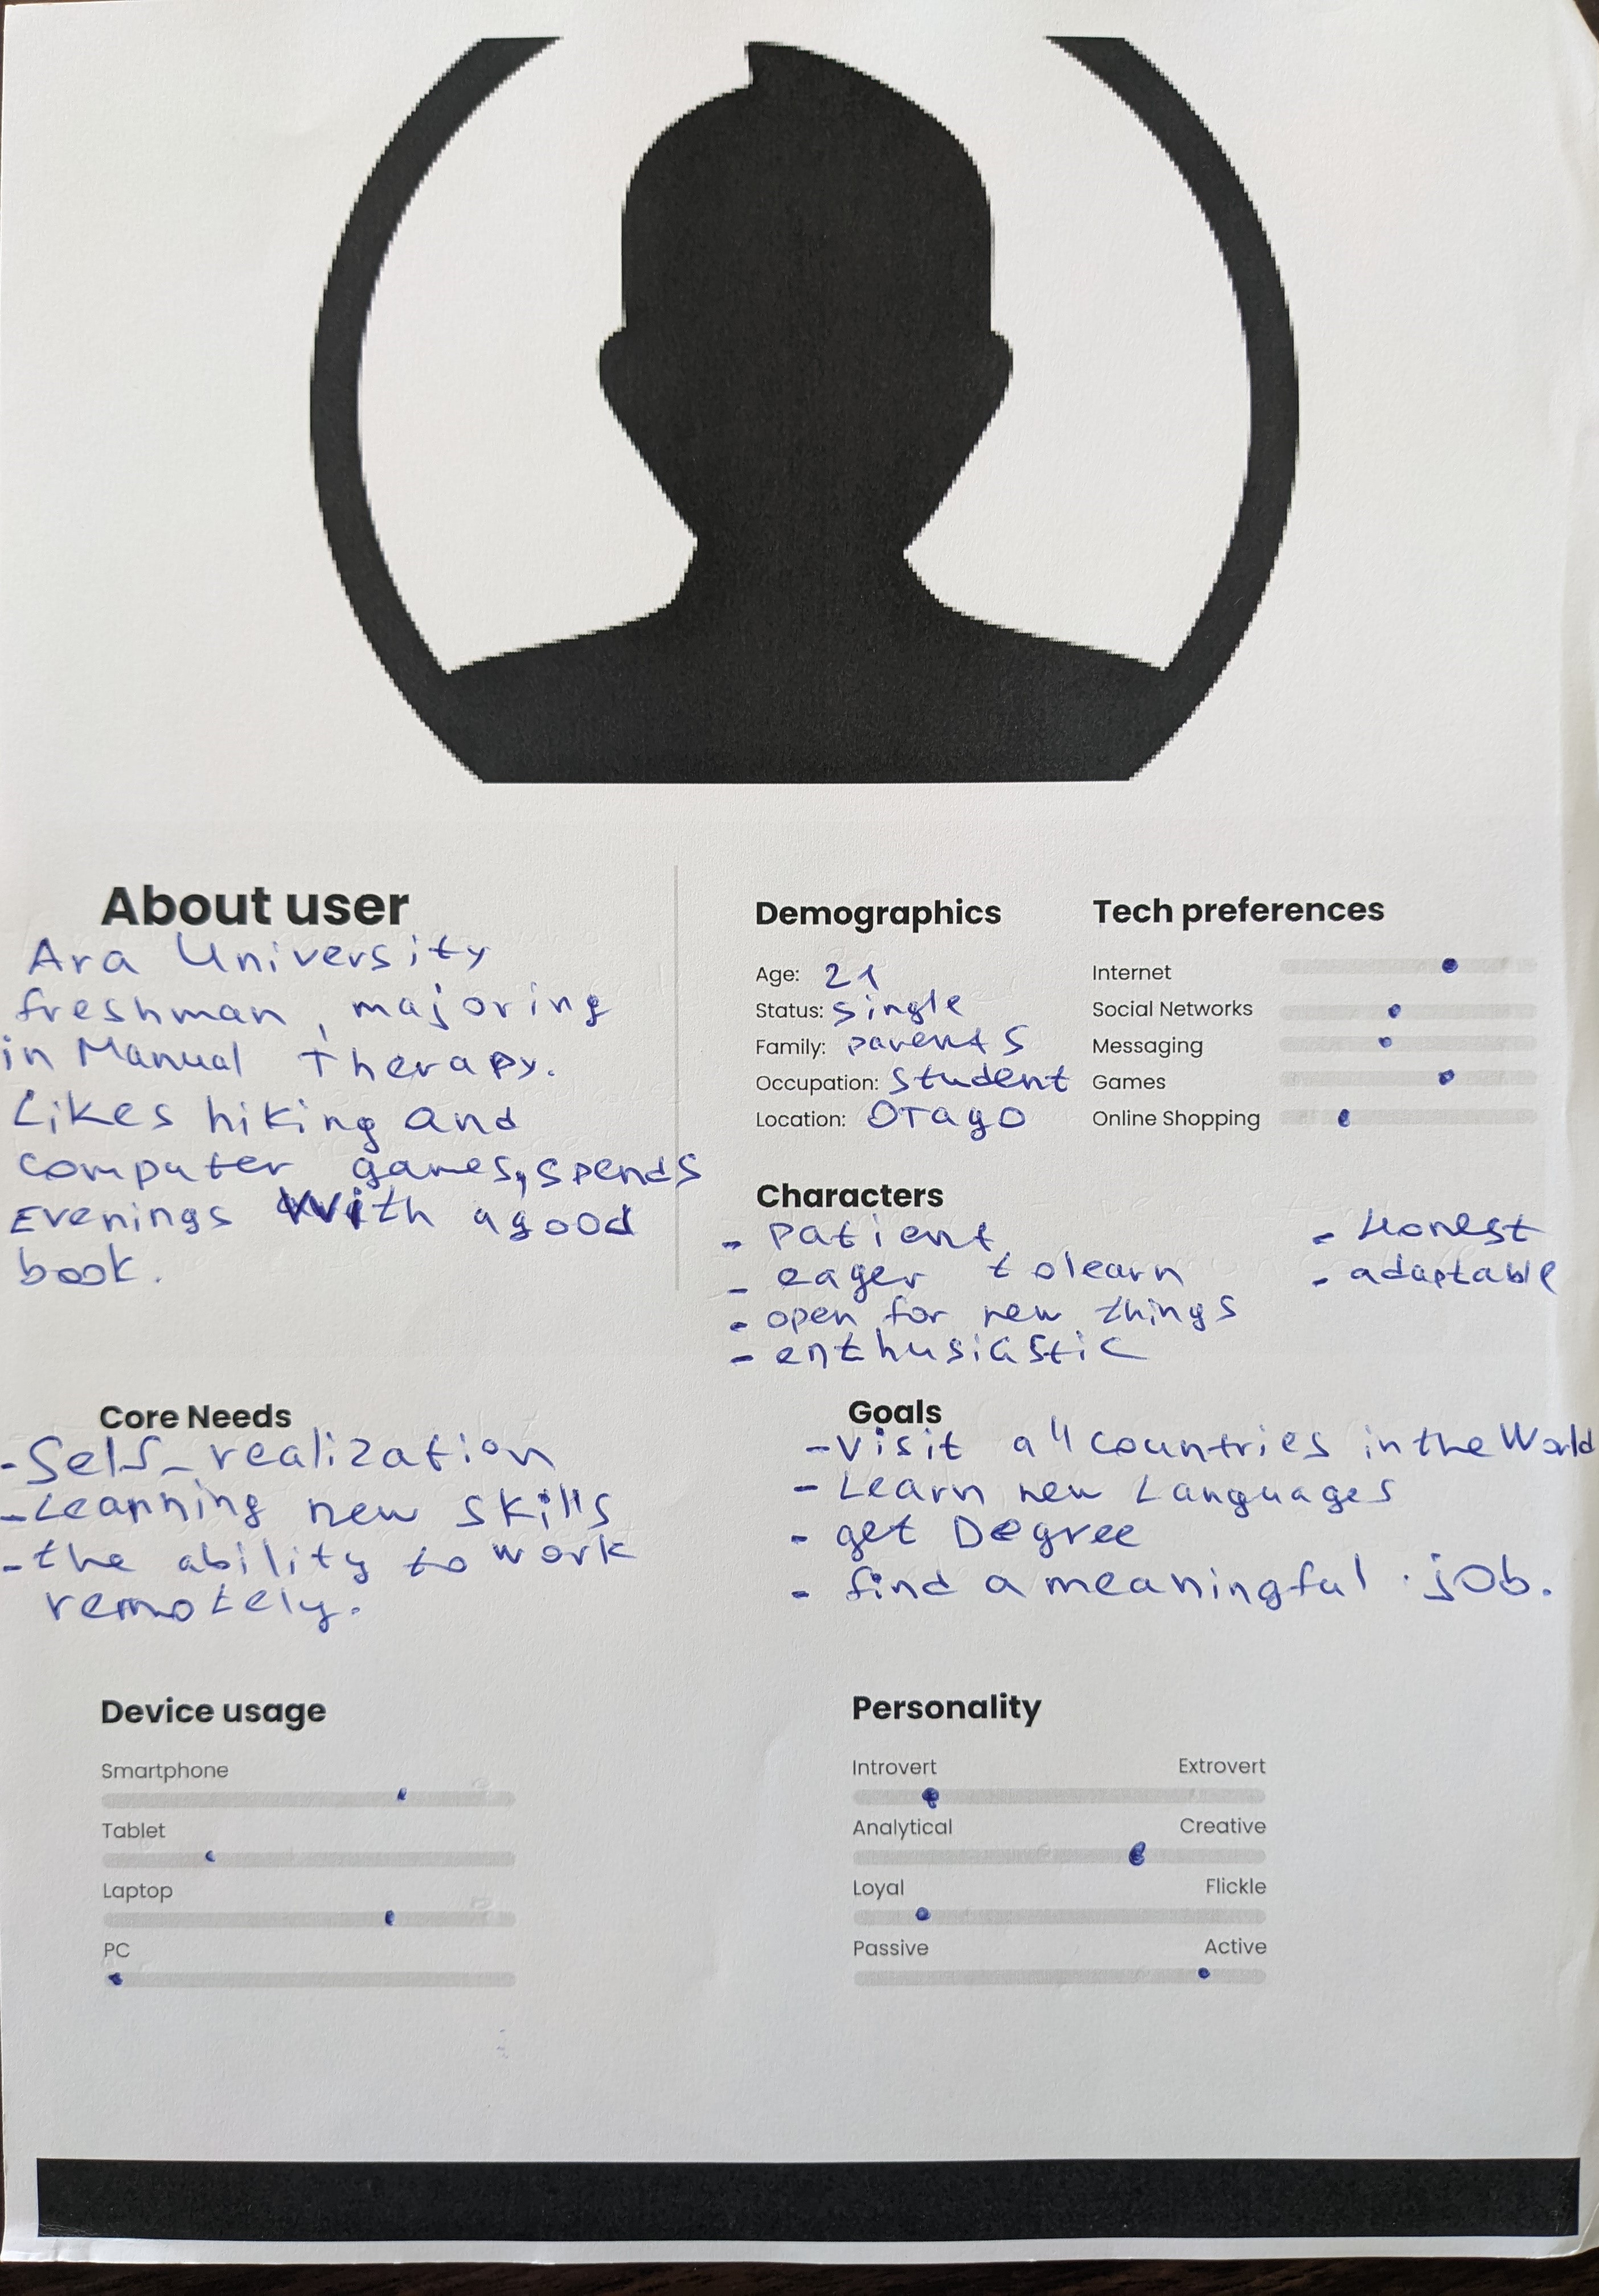 About user
Ara University
freshman, majoring
in Manual Therapy.
Likes hiking and
computer games, spends
Evenings With a good
book.
Demographics
Age: 21
Status: single
Family: parents
Occupation: student
Location: Otago
Tech preferences
Internet
Social Networks
Messaging
Games
Online Shopping
Characters
- patient
- eager to learn
- open for new things
- enthusiastic
- Honest
- adaptable
Core Needs
- Self-realization
- Learning new skills
- the ability to work
remotely.
Goals
- Visit all countries in the World
- Learn new Languages
- get Degree
- find a meaningful job.
Device usage
Smartphone
Tablet
Laptop
PC
Personality
Introvert Extrovert
Analytical Creative
Loyal Flickle
Passive Active